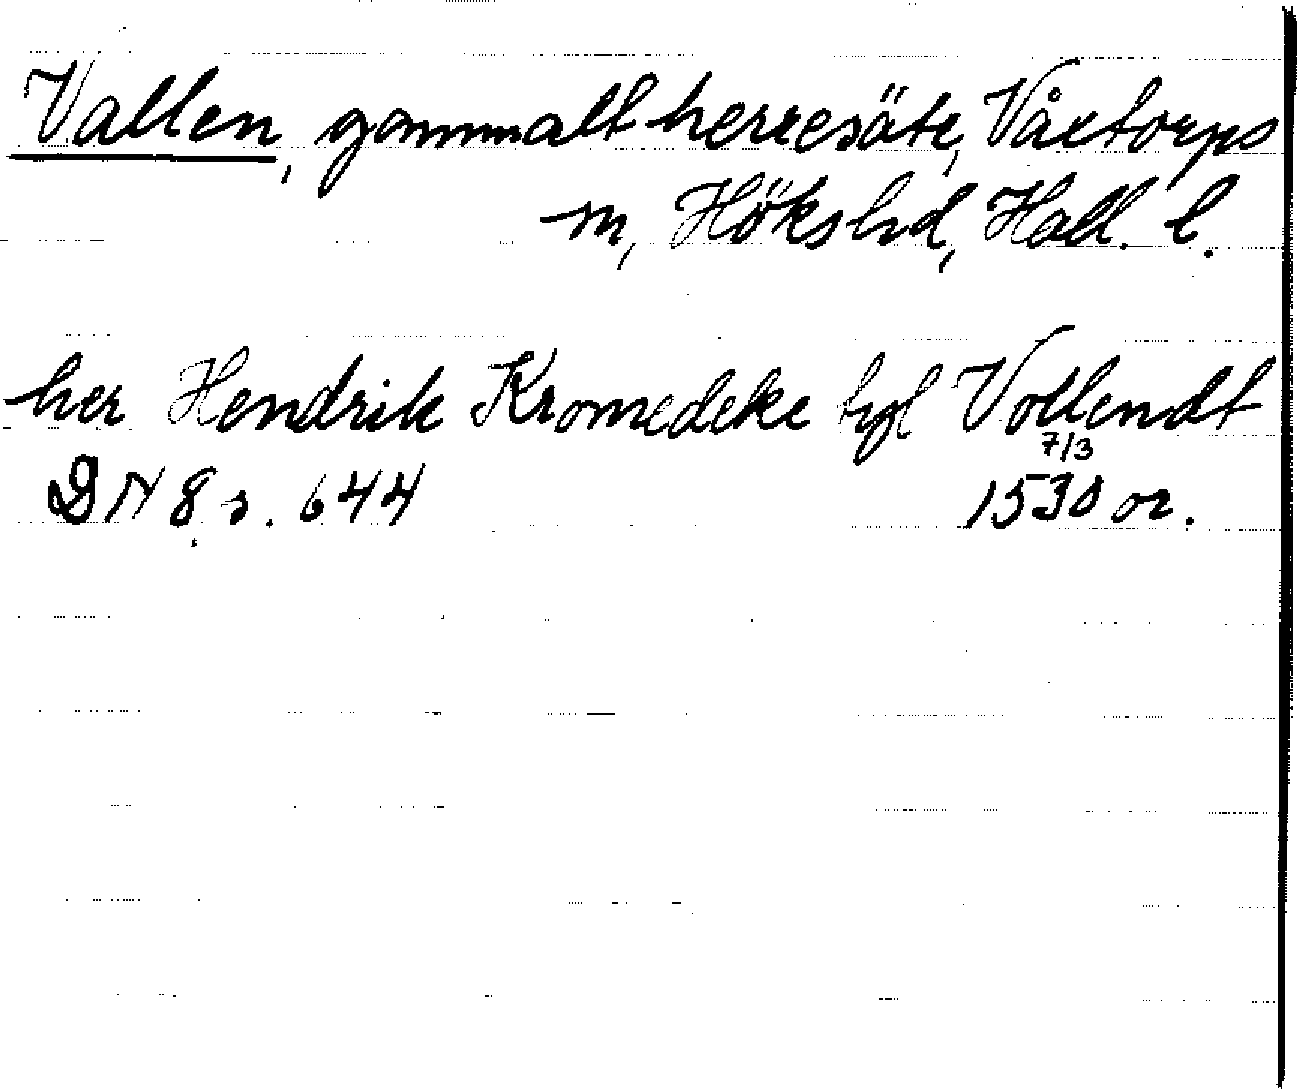 Vallen, gammalt herresäte, Våxtorps
sn, Höks hd, Hall. l.
her Hendrik Kromedeke tyl Vollendt
7/3
DN 8 s. 644 1530 or.